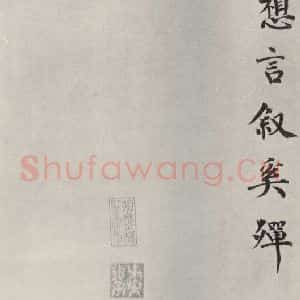 想言叙奚殫
Shufawang.c